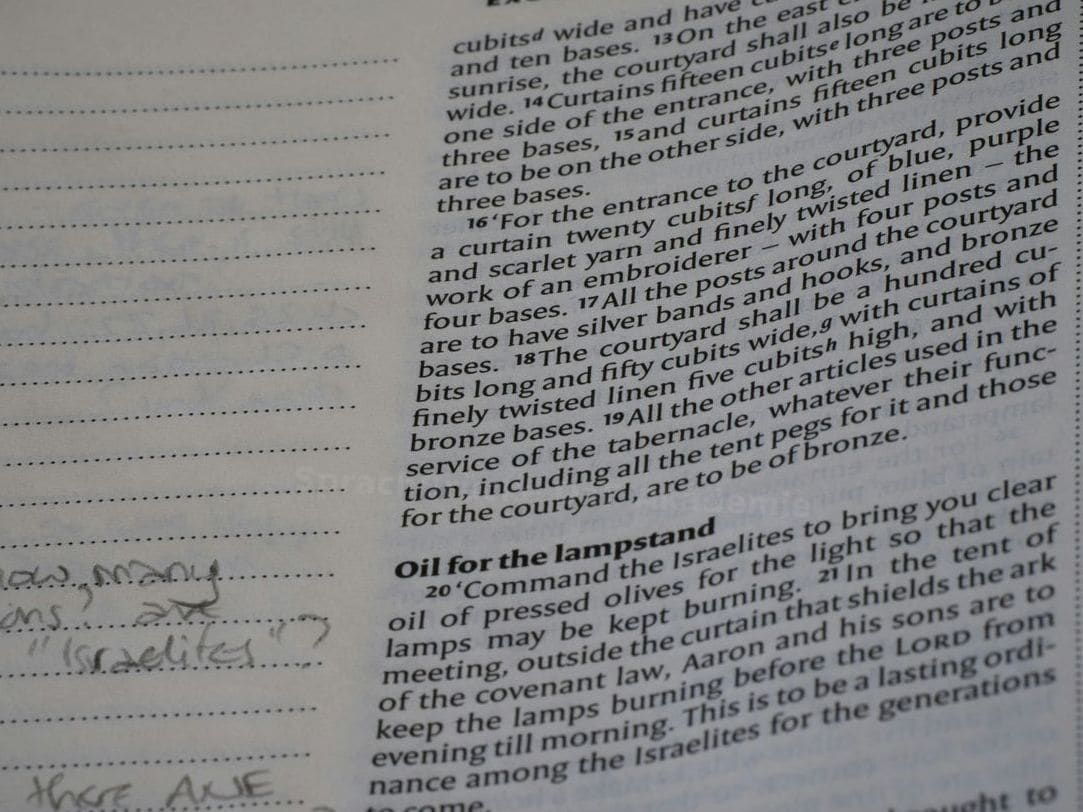 cubitsd wide and have
and ten bases. 13On the east
sunrise, the courtyard shall also be
wide. 14Curtains fifteen cubitse long are to
one side of the entrance, with three posts and
three bases, 15and curtains fifteen cubits long
are to be on the other side, with three posts and
three bases.
16‘For the entrance to the courtyard, provide
a curtain twenty cubitsf long, of blue, purple
and scarlet yarn and finely twisted linen – the
work of an embroiderer – with four posts and
four bases. 17All the posts around the courtyard
are to have silver bands and hooks, and bronze
bases. 18The courtyard shall be a hundred cu-
bits long and fifty cubits wide,g with curtains of
finely twisted linen five cubitsh high, and with
bronze bases. 19All the other articles used in the
service of the tabernacle, whatever their func-
tion, including all the tent pegs for it and those
for the courtyard, are to be of bronze.
Oil for the lampstand
20‘Command the Israelites to bring you clear
oil of pressed olives for the light so that the
lamps may be kept burning. 21In the tent of
meeting, outside the curtain that shields the ark
of the covenant law, Aaron and his sons are to
keep the lamps burning before the LORD from
evening till morning. This is to be a lasting ordi-
nance among the Israelites for the generations
to come.
many
are
"Israelites"?
there ANE